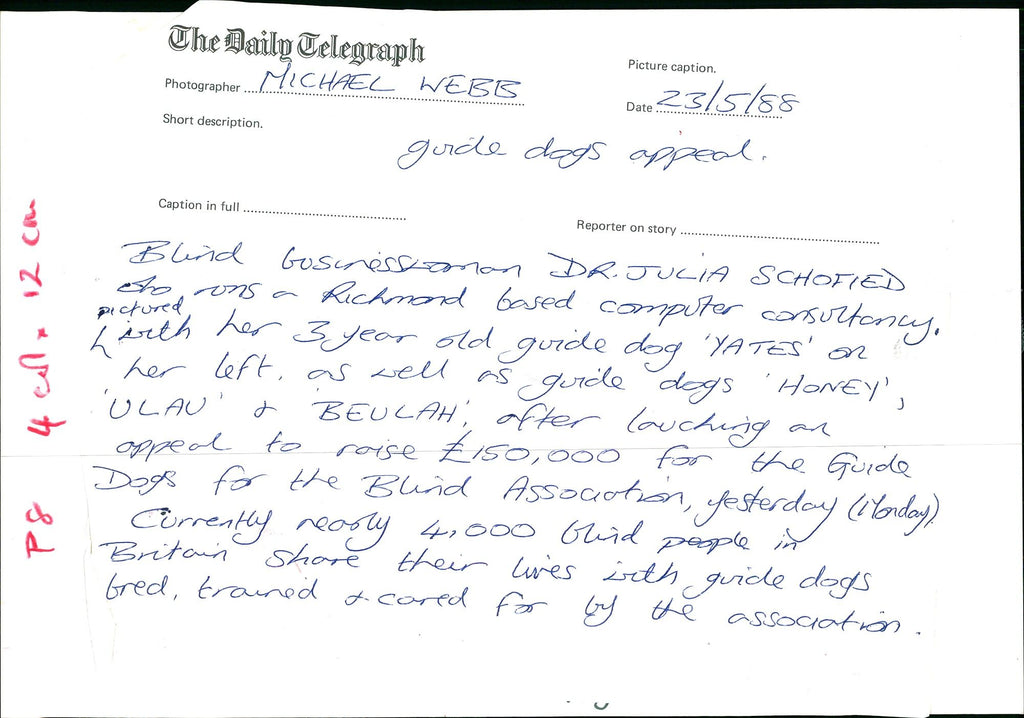 The Daily Telegraph
Picture caption.
Photographer MICHAEL WEBB
Date 23/5/88
Short description.
guide dogs appeal.
Caption in full
Reporter on story
Blind businesswoman DR. JULIA SCHOFIED
who runs a Richmond based computer consultancy.
pictured
with her 3 year old guide dog 'YATES' on
her left, as well as guide dogs 'HONEY',
'ULAU' & 'BEULAH', after lauching an
appeal to raise £150,000 for the Guide
Dogs for the Blind Association, yesterday (Monday).
Currently nearly 4,000 blind people in
Britain share their lives with guide dogs
bred, trained & cared for by the association.
P8 4 col x 12 cm